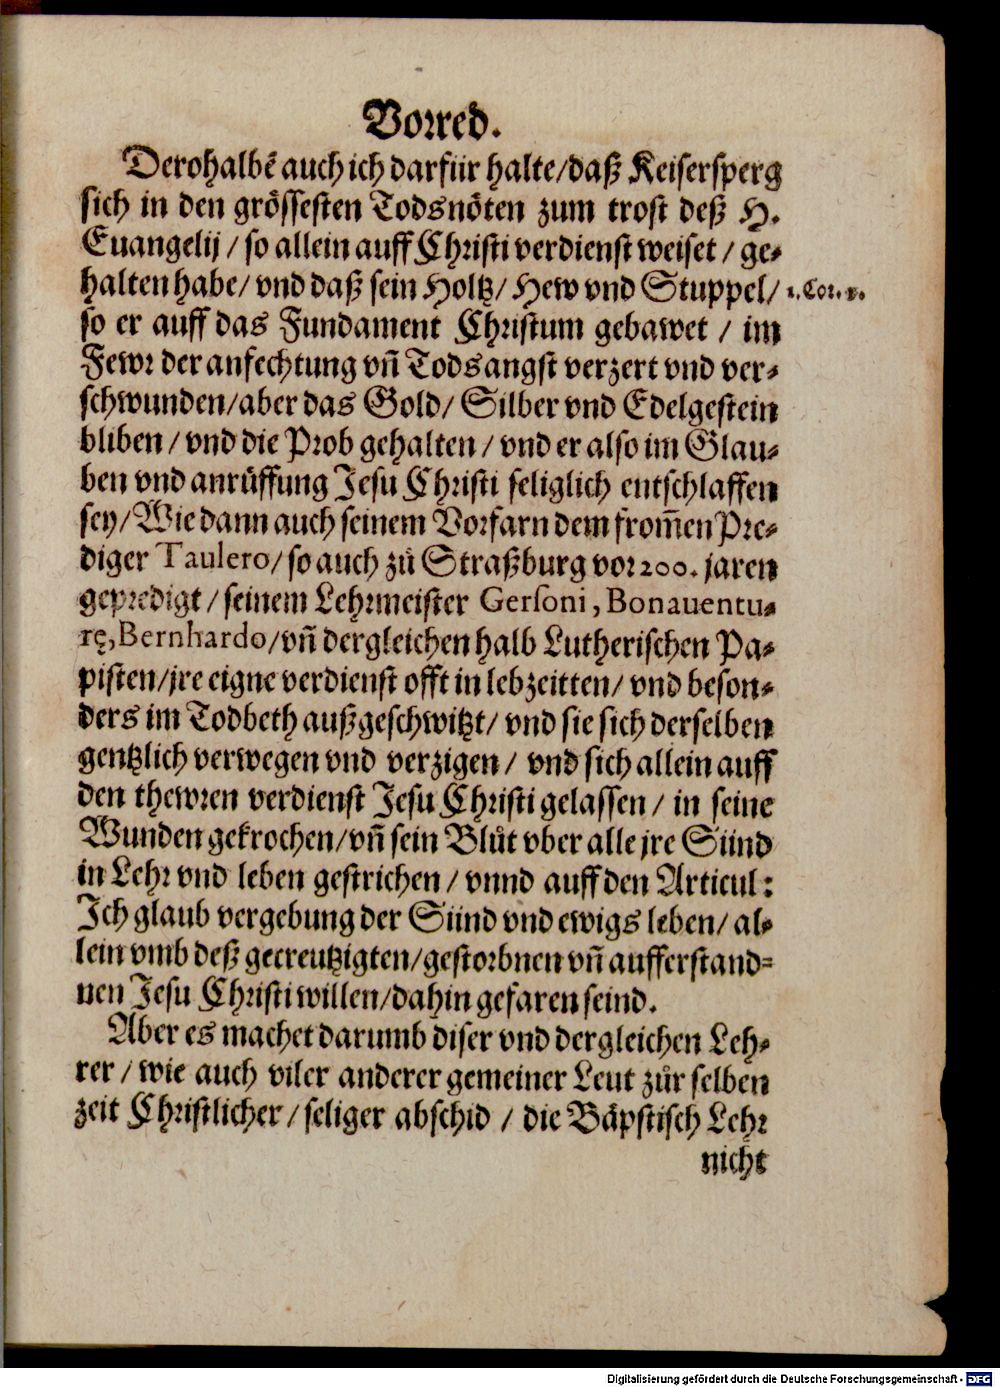 Vorred.
Derohalbẽ auch ich darfür halte/daß Keisersperg
sich in den grössesten Todsnöten zum trost deß H.
Euangelij / so allein auff Christi verdienst weiset / ge-
halten habe/ vnd daß sein Holtz/ Hew vnd Stuppel/ 1. Cor. 3.
so er auff das Fundament Christum gebawet / im
Fewr der anfechtung vñ Todsangst verzert vnd ver-
schwunden/aber das Gold/ Silber vnd Edelgestein
bliben / vnd die Prob gehalten / vnd er also im Glau-
ben vnd anrüffung Jesu Christi seliglich entschlaffen
sey/Wie dann auch seinem Vorfarn dem from̃en Pre-
diger Taulero/ so auch zů Straßburg vor 200. jaren
gepredigt / seinem Lehrmeister Gersoni, Bonauentu-
rę, Bernhardo/vñ dergleichen halb Lutherischen Pa-
pisten/jre eigne verdienst offt in lebzeitten/ vnd beson-
ders im Todbeth außgeschwitzt/ vnd sie sich derselben
gentzlich verwegen vnd verzigen / vnd sich allein auff
den thewren verdienst Jesu Christi gelassen / in seine
Wunden gekrochen/vñ sein Blůt vber alle jre Sünd
in Lehr vnd leben gestrichen / vnnd auff den Articul:
Ich glaub vergebung der Sünd vnd ewigs leben/ al-
lein vmb deß gecreutzigten/gestorbnen vñ aufferstand-
nen Jesu Christi willen/dahin gefaren seind.
Aber es machet darumb diser vnd dergleichen Leh-
rer / wie auch viler anderer gemeiner Leut zůr selben
zeit Christlicher / seliger abschid / die Bäpstisch Lehr
nicht
Digitalisierung gefördert durch die Deutsche Forschungsgemeinschaft - DFG